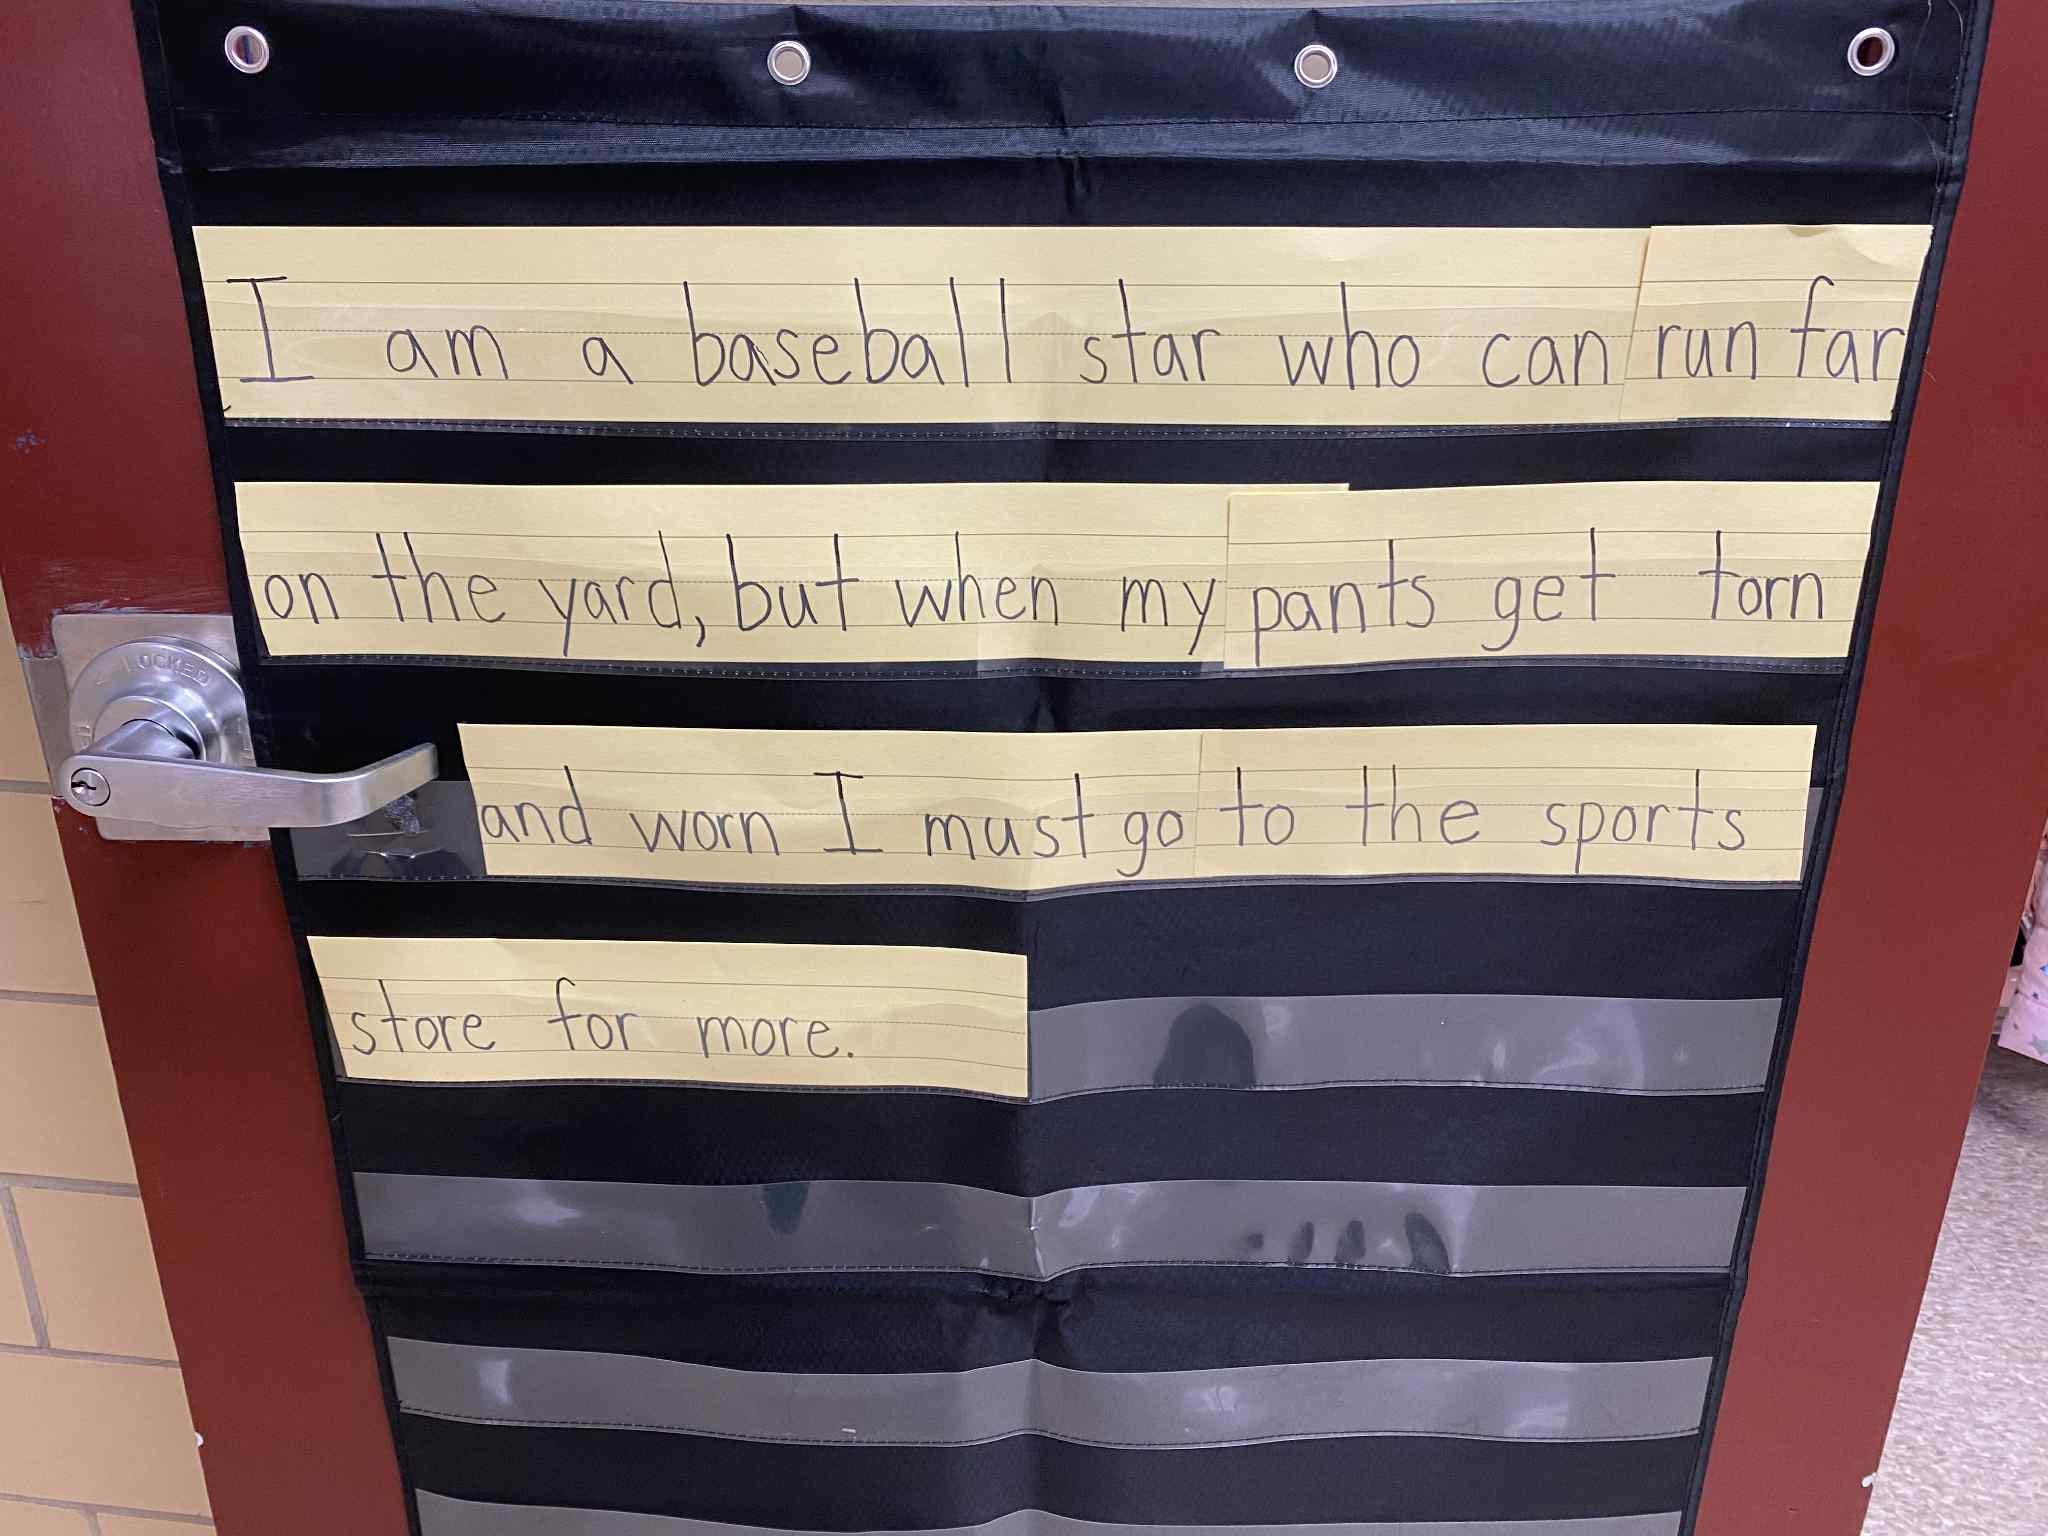 I am a baseball star who can run far
on the yard, but when my pants get torn
LOCKED
and worn I must go to the sports
store for more.